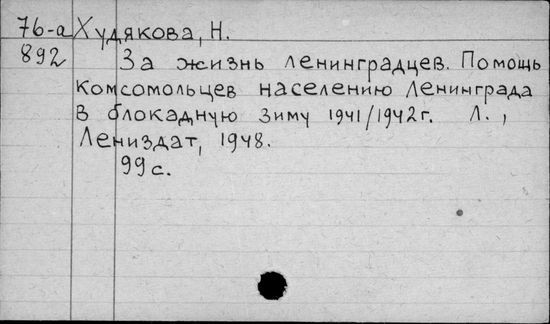 76-а Худякова, Н.
892 За жизнь ленинградцев. Помощь
комсомольцев населению Ленинграда
в блокадную зиму 1941/1942 г. Л.,
Лениздат, 1948.
99 с.